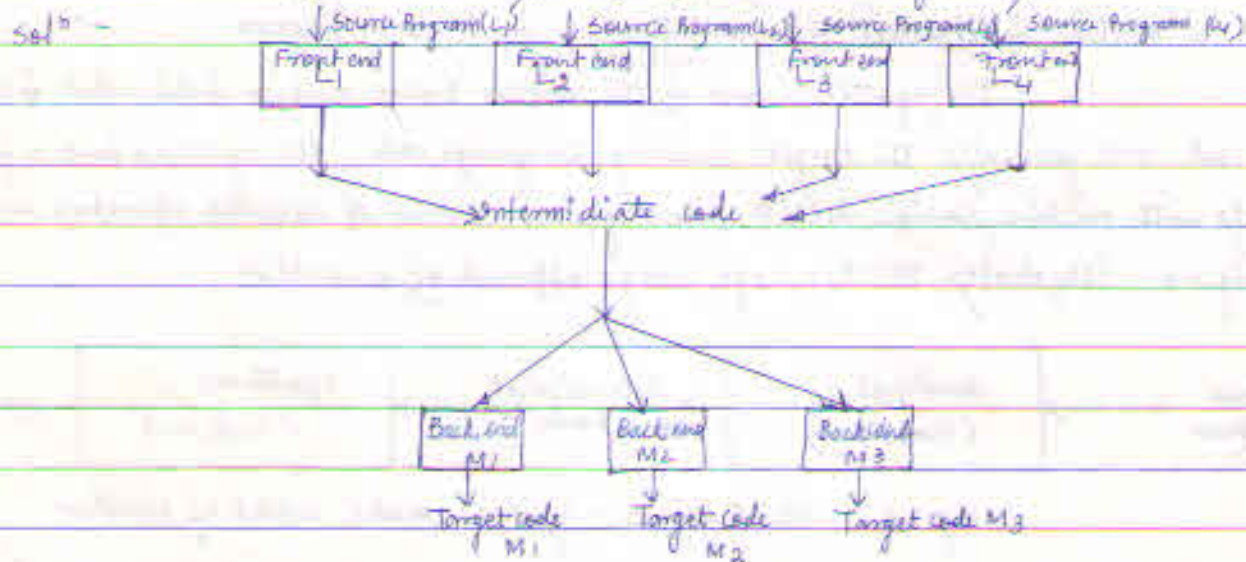 Solⁿ -
Source Program (L1) Source Program (L2) Source Program (L Source Program (L4)
Front end L1 Front end L2 Front end L3 Front end L4
Intermidiate code
Back end M1 Back end M2 Back end M3
Target code M1 Target code M2 Target code M3